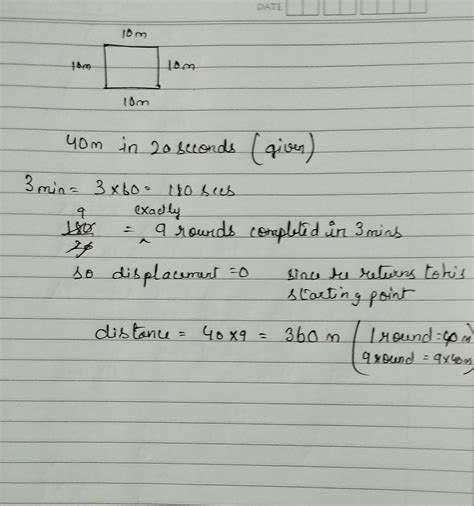 DATE
10m
10m 10m
10m
40m in 20 seconds (given)
3 min = 3 × 60 = 180 secs
9 exactly
180 = ^ 9 rounds completed in 3 mins
20
so displacement = 0 since he returns to his
starting point
distance = 40 × 9 = 360 m (1 round = 40 m)
9 round = 9 × 40m